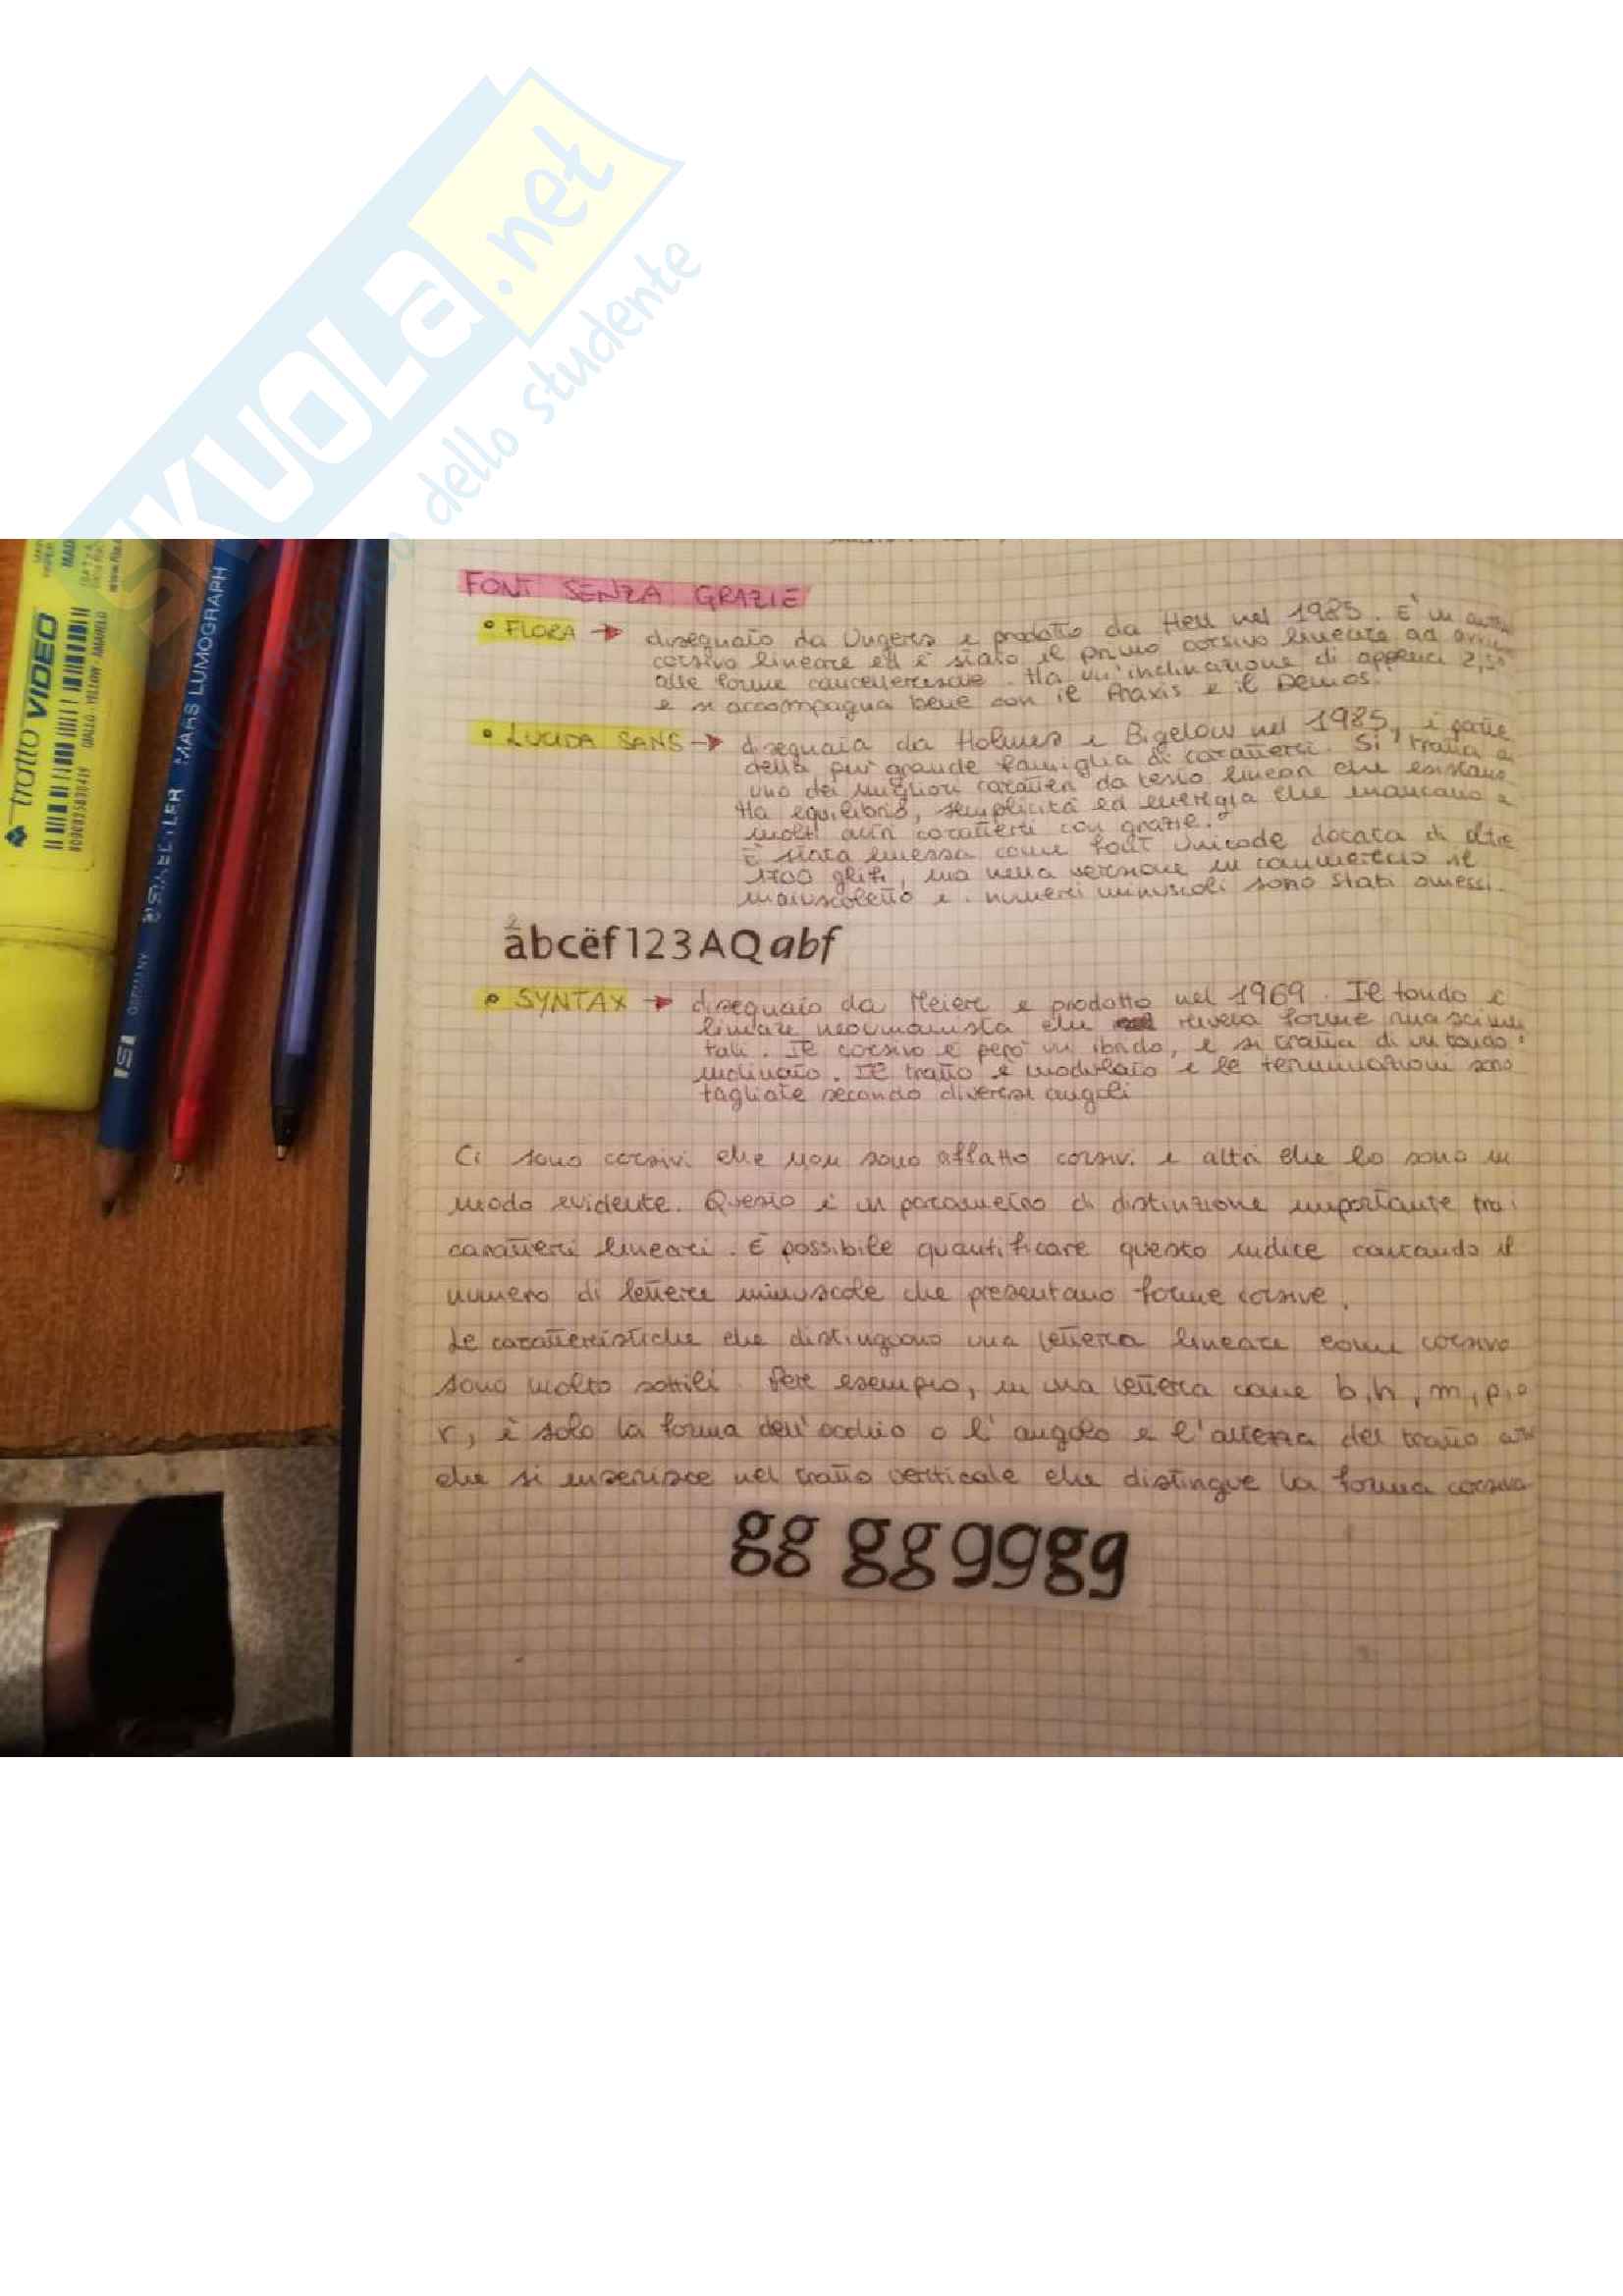 SKUOLA.net
dello studente
tratto VIDEO
GIALLO - YELLOW - AMARELO
MARS LUMOGRAPH
STAEDTLER
GERMANY
FONT SENZA GRAZIE
• FLORA → disegnato da Ungers e prodotto da Hell nel 1985. E' un
corsivo lineare ed è stato il primo corsivo lineare ad
alle forme cancelleresche. Ha un'inclinazione di appena 2,5°
e si accompagna bene con il Praxis e il Demos.
• LUCIDA SANS → disegnata da Holmes e Bigelow nel 1985, è parte
della più grande famiglia di caratteri. Si tratta di
uno dei migliori caratteri da testo lineari che esistano.
Ha equilibrio, semplicità ed energia che mancano a
molti altri caratteri con grazie.
È stata emessa come font Unicode dotata di oltre
1700 glifi, ma nella versione in commercio il
maiuscoletto e i numeri minuscoli sono stati omessi.
abcëf123AQabf
• SYNTAX → disegnato da Meier e prodotto nel 1969. Il tondo è
lineare neoumanista che rivela forme rinascimen
tali. Il corsivo è però un ibrido, e si tratta di un tondo
inclinato. Il tratto è modulato e le terminazioni sono
tagliate secondo diversi angoli
Ci sono corsivi che non sono affatto corsivi e altri che lo sono in
modo evidente. Questo è un parametro di distinzione importante tra i
caratteri lineari. È possibile quantificare questo indice contando il
numero di lettere minuscole che presentano forme corsive.
Le caratteristiche che distinguono una lettera lineare come corsivo
sono molto sottili. Per esempio, in una lettera come b, h, m, p, o
r, è solo la forma dell'occhio o l'angolo e l'altezza del tratto
che si inserisce nel tratto verticale che distingue la forma corsiva
gg gg gg gg